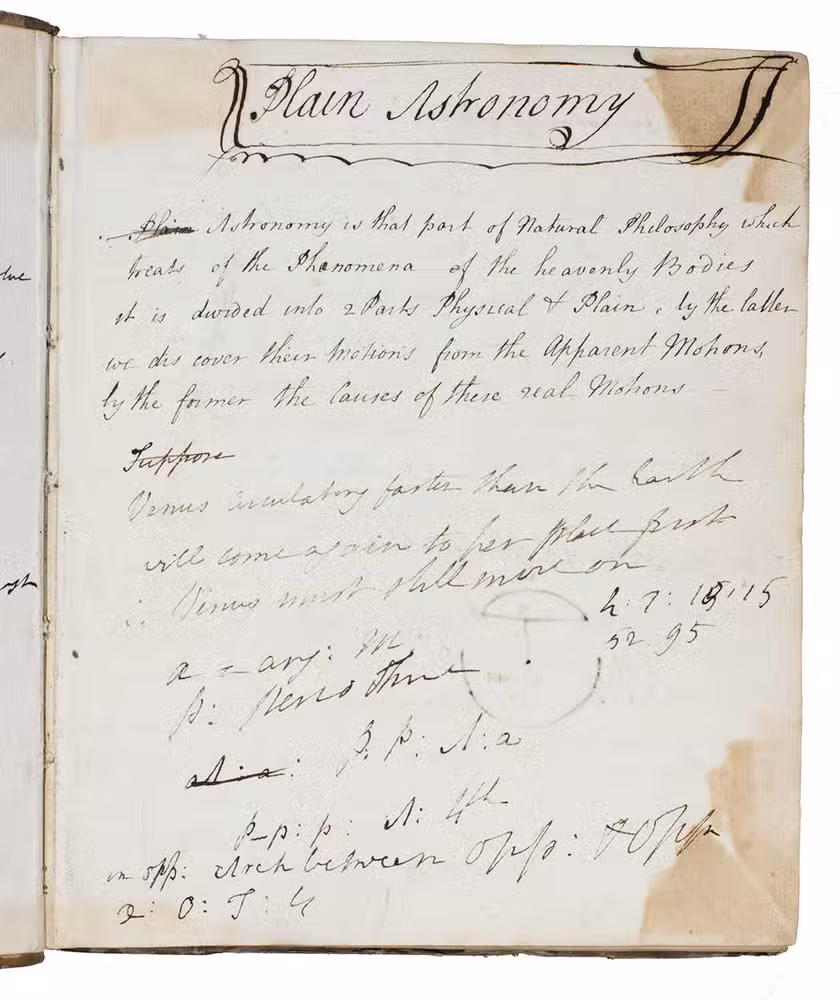 Plain Astronomy
Plain Astronomy is that part of Natural Philosophy which
treats of the Phenomena of the heavenly Bodies
it is divided into 2 Parts Physical & Plain, by the latter
we discover their Motions from the Apparent Motions,
by the former the Causes of these real Motions
Suppose
Venus circulating faster than the Earth
will come again to her place first
∴ Venus must still move on
4: 7: 15: 15
52. 95
a = any: M
p: Period Time
P: p: A: a
P-p: p: A: 4th
in opp: Arch between opp: & Opp